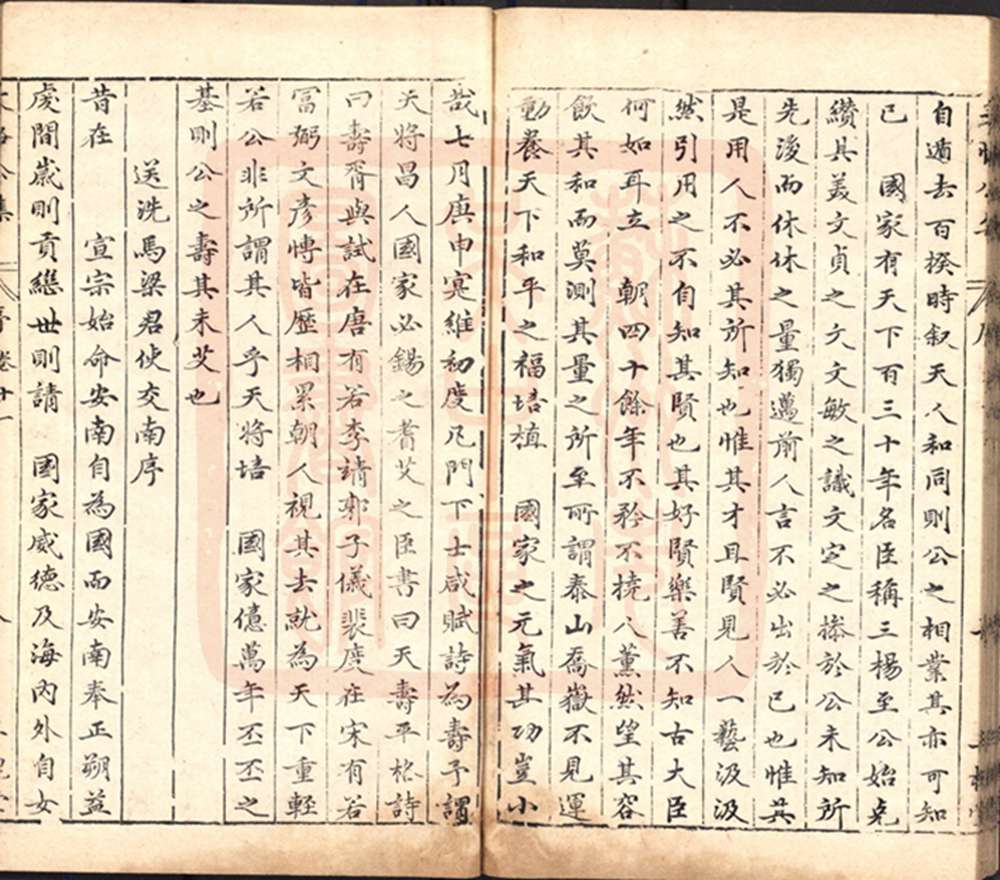 自遁去百揆時叙天人和同則公之相業其亦可知
已　國家有天下百三十年名臣稱三楊至公始克
纘具美文貞之文文敏之識文定之操於公未知所
先後而休休之量獨邁前人言不必出於已也惟其
是用人不必其所知也惟其才且賢見人一藝汲汲
然引用之不自知其賢也其好賢樂善不知古大臣
何如耳立　朝四十餘年不矜不撓人薰然望其容
飲其和而莫測其量之所至所謂泰山喬嶽不見運
動養天下和平之福培植　國家之元氣其功豈小
哉七月庚申寔維初度凡門下士咸賦詩為壽予謂
天將昌人國家必錫之耆艾之臣書曰天壽平格詩
曰壽胥與試在唐有若李靖郭子儀裴度在宋有若
富弼文彥博皆歷相累朝人視其去就為天下重輕
若公非所謂其人乎天將培　國家億萬年丕丕之
基則公之壽其未艾也
送洗馬梁君使交南序
昔在　宣宗始命安南自為國而安南奉正朔益
虔間歲則貢繼世則請　國家威德及海內外自女